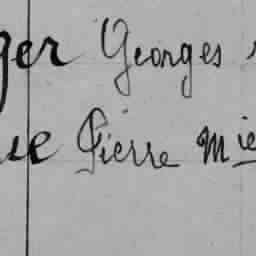 ger Georges
ue Pierre Mie